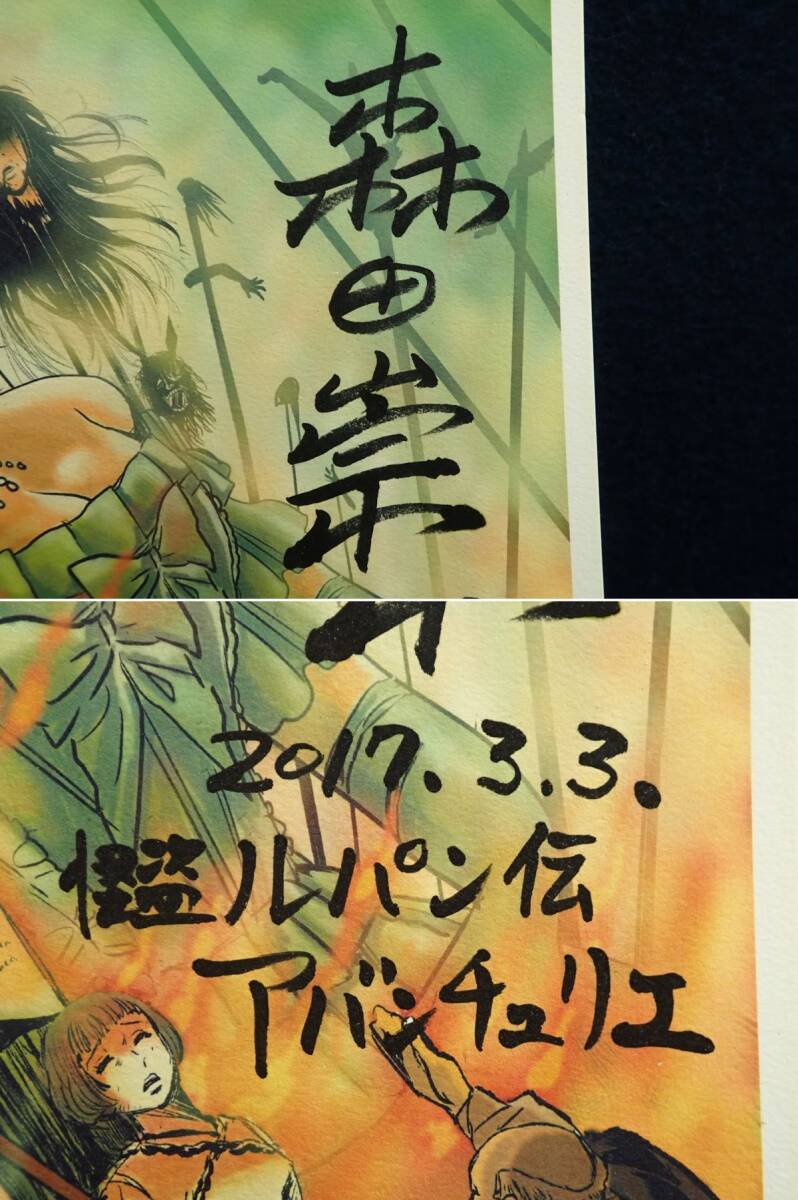 森田崇
2017.3.3.
怪盗ルパン伝
アバンチュリエ